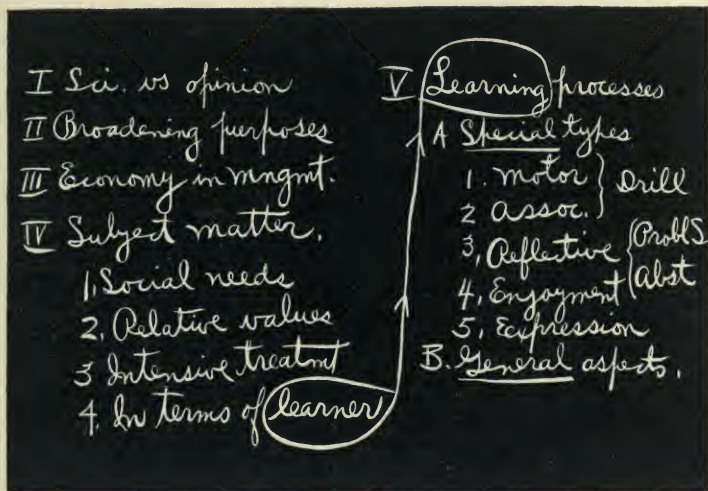 I Sci. vs opinion
II Broadening purposes
III Economy in mngmt.
IV Subject matter.
1. Social needs
2. Relative values
3 Intensive treatmt
4. In terms of learner
V Learning processes
A Special types
1. Motor } Drill
2 Assoc. }
3, Reflective { Probl S
Abst
4, Enjoyment
5, Expression
B. General aspects.